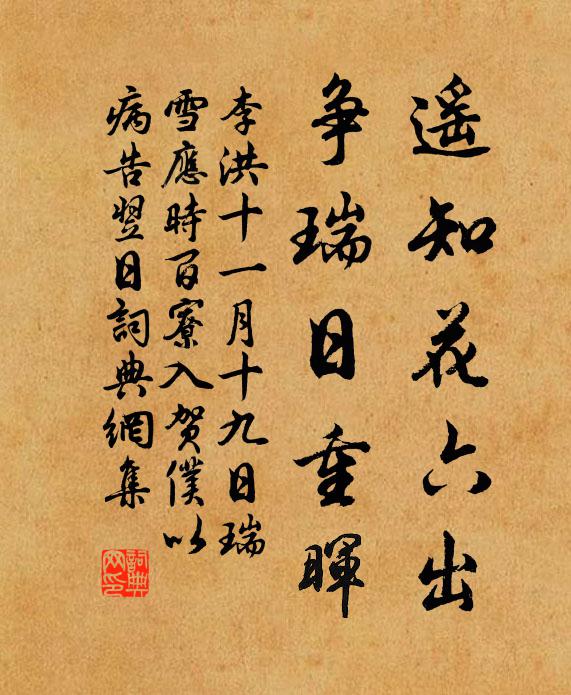 遥知花六出
争瑞日重暉
李洪十一月十九日瑞
雪應時百寮入贺僕以
病告翌日詞典網集
詞典
网印